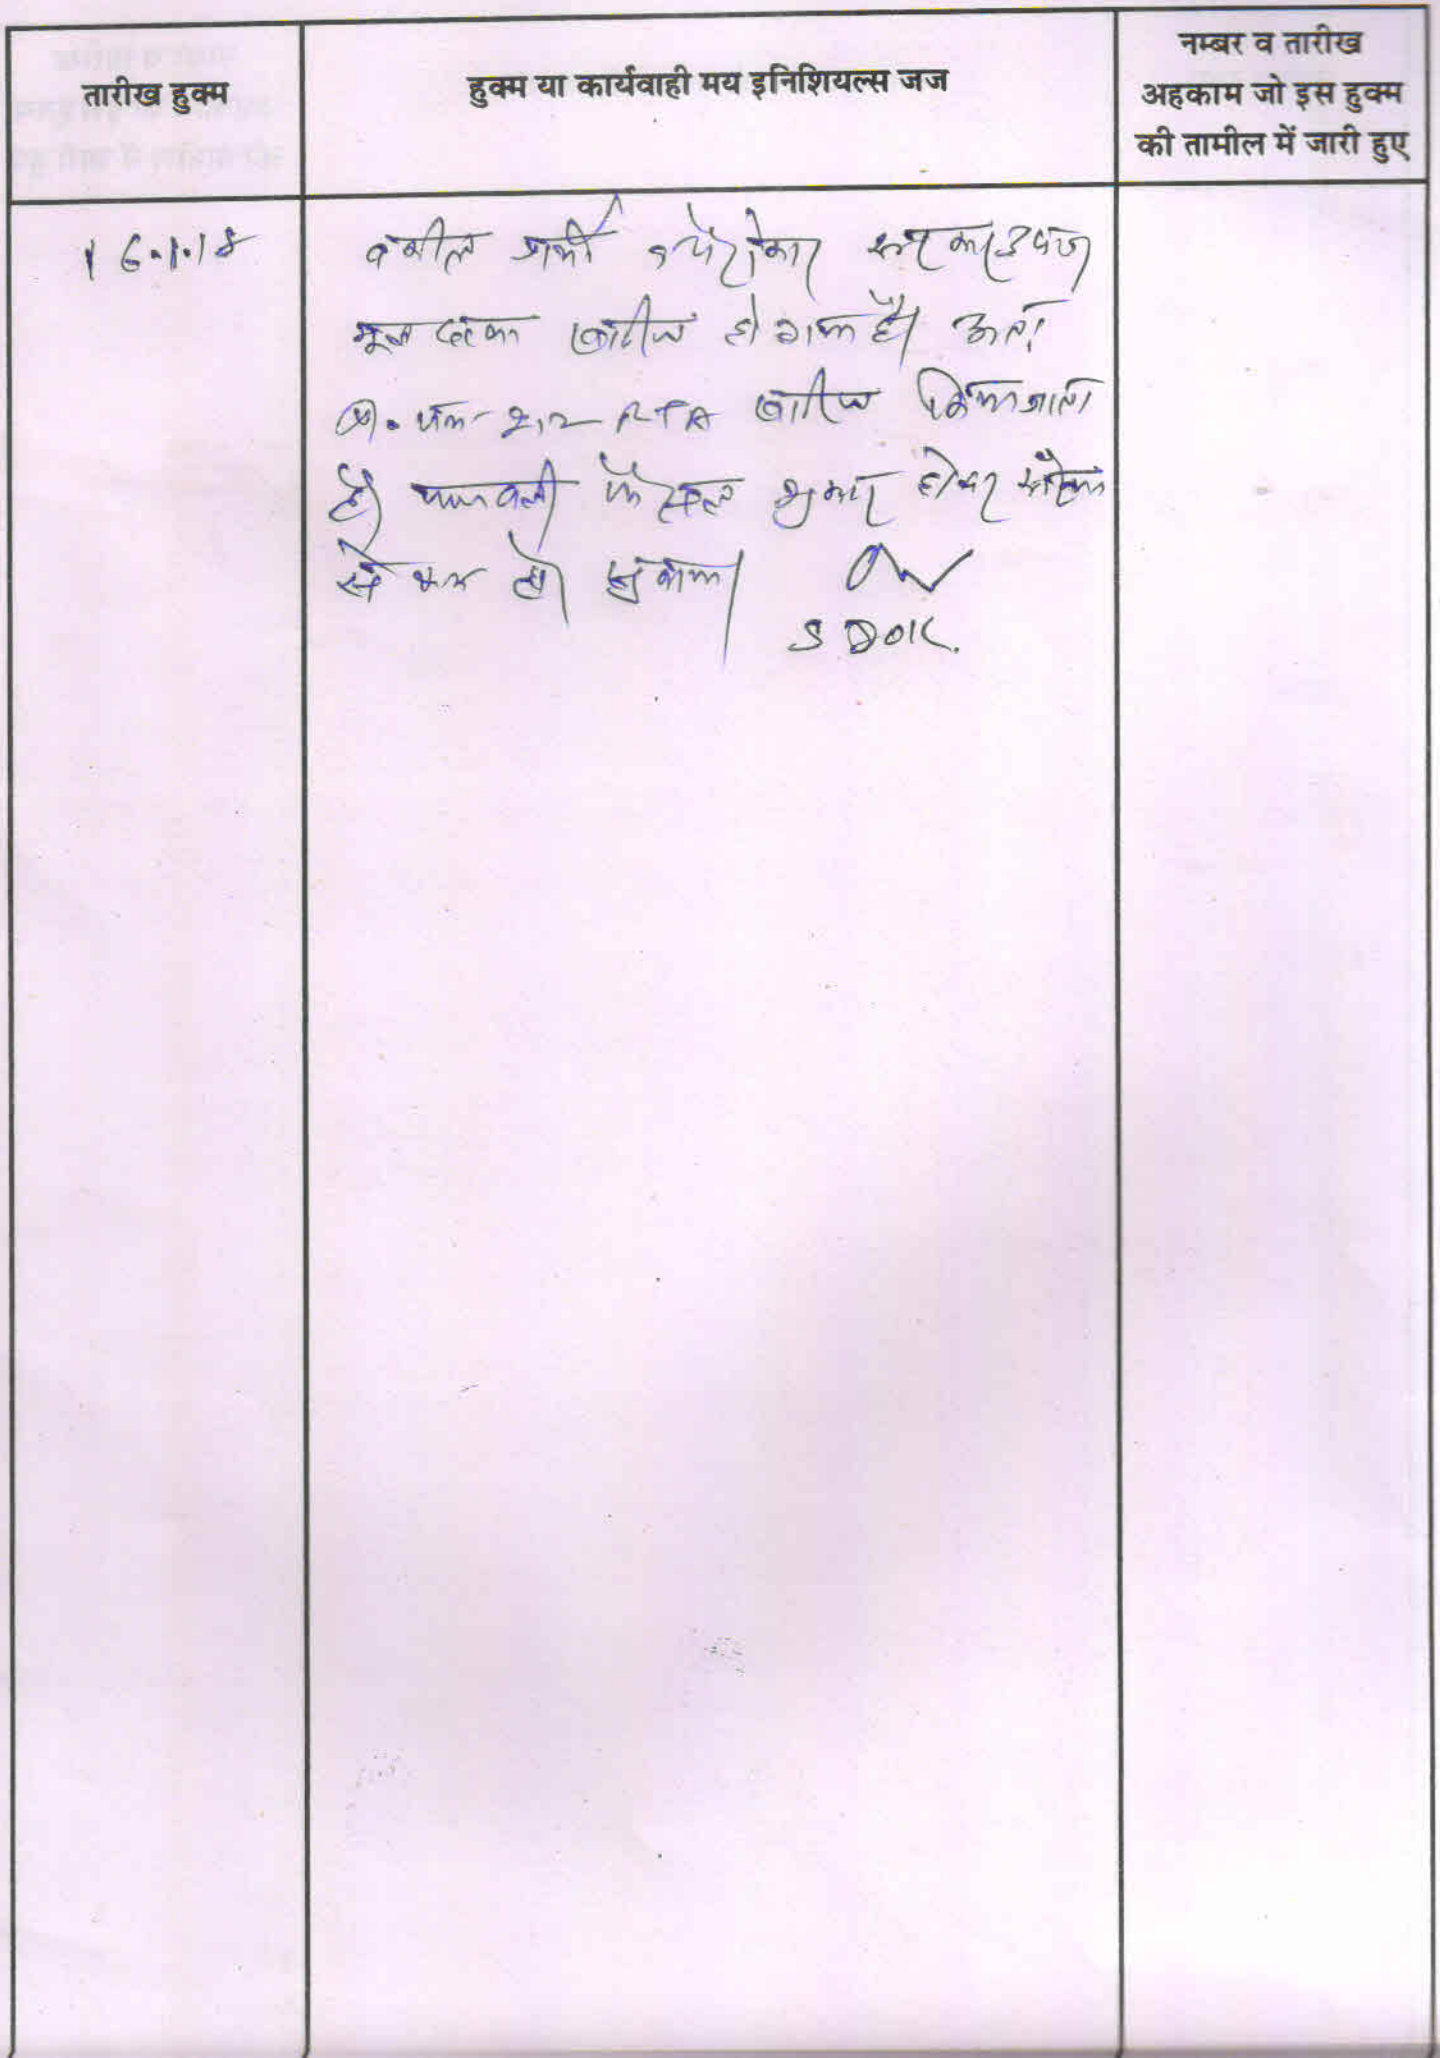 तारीख हुक्म
हुक्म या कार्यवाही मय इनिशियल्स जज
नम्बर व तारीख
अहकाम जो इस हुक्म
की तामील में जारी हुए
16.1.18
वकील प्रार्थी व पैरोकार सरकार उप०
मूल दावा खारीज हो गया है। अतः
प्रा. पत्र 212 RTA खारीज किया जाता
है। पत्रावली फैसल शुमार होकर
से कम हो।
SDOK.